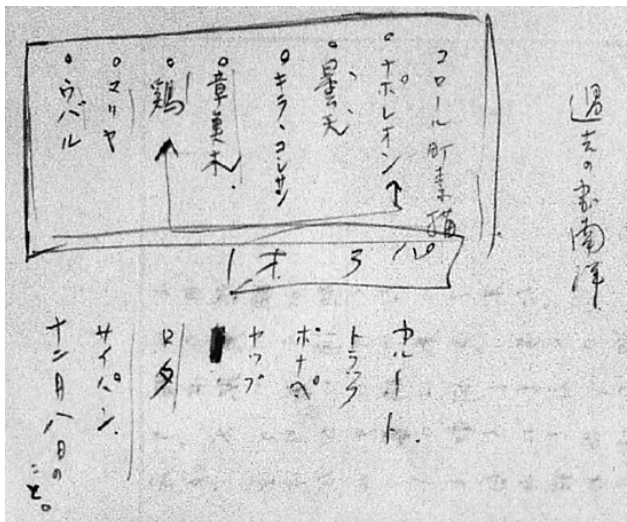 コロール町素描
ナポレオン
曇天
キラ・コシサン
章魚木
鶏
マリヤ
ウバル
パラオ
ヤルート.
トラック
ポナペ
ヤップ
ロタ
サイパン.
十二月八日の
こと。